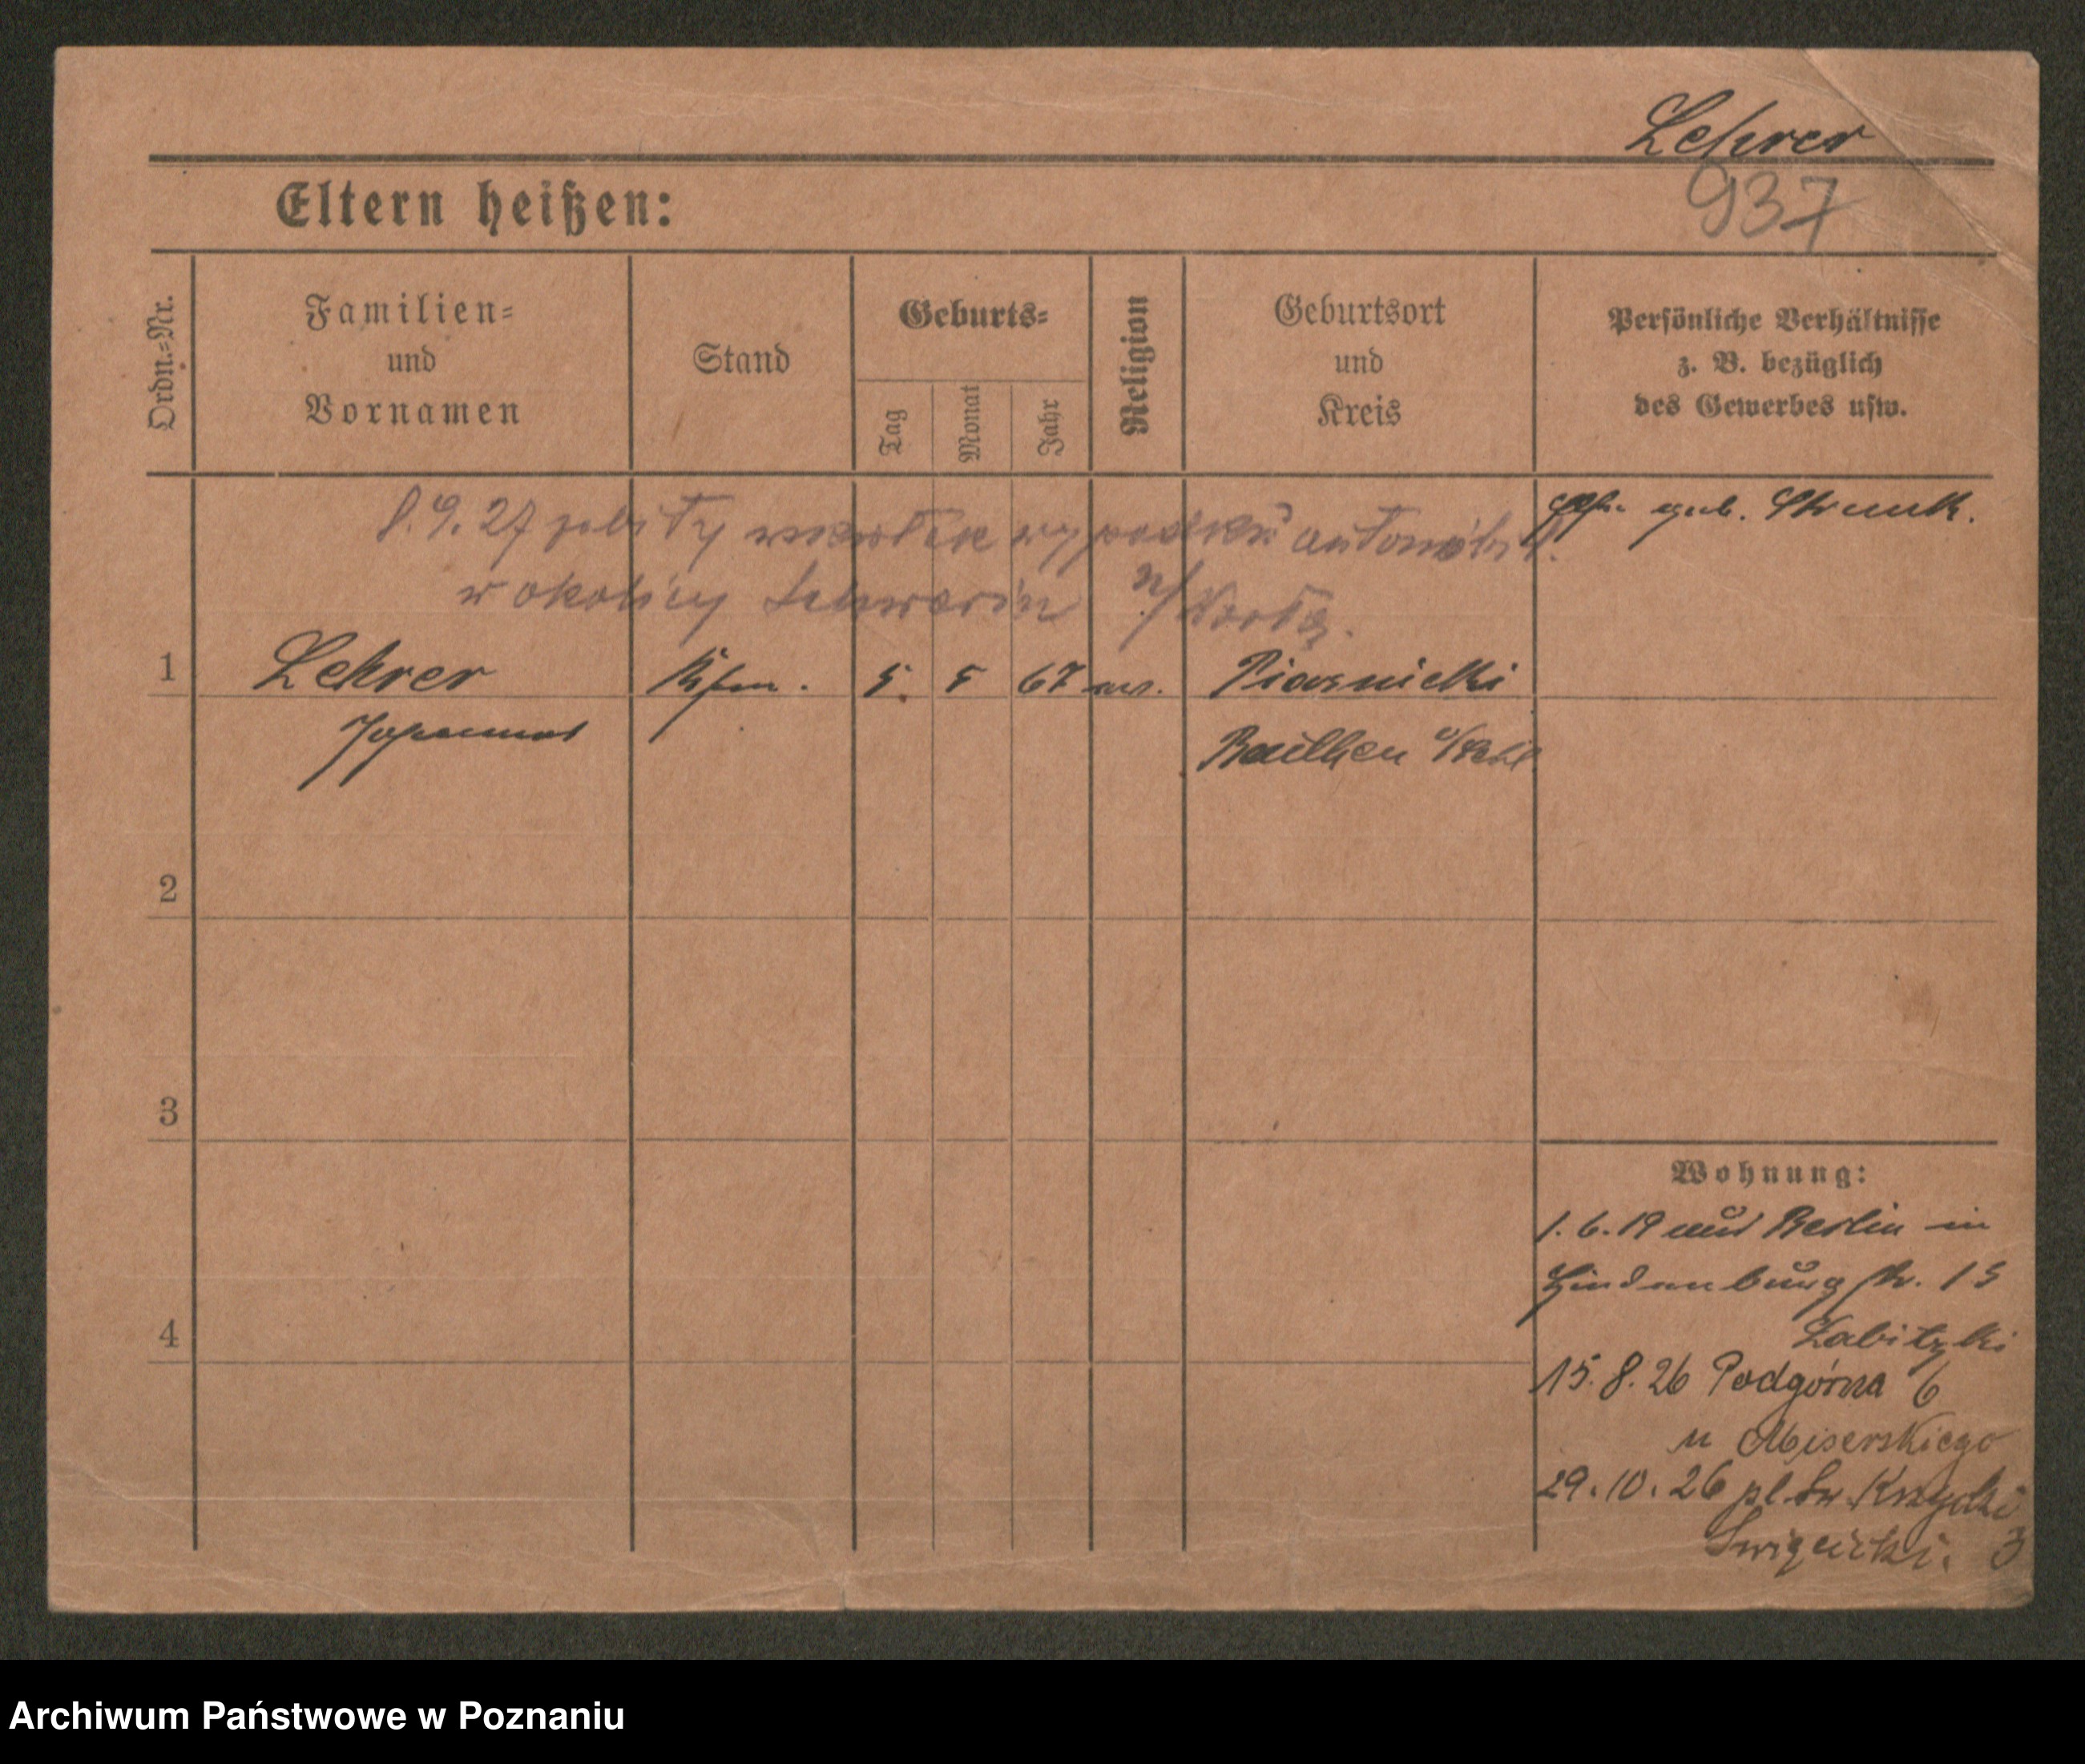 Lehrer
937
Eltern heißen:
Ordn.-Nr.
Familien-
und
Vornamen
Stand
Geburts-
Tag
Monat
Jahr
Religion
Geburtsort
und
Kreis
Persönliche Verhältnisse
z. B. bezüglich
des Gewerbes usw.
gesch. geb.
8.9.27 zabity wskutek wypadku automobil.
w okolicy Schwerin n/Wartą.
1 Lehrer Kfm. 5. 5 67 Piasnicki
Johannes Beuthen
2
3
4
Wohnung:
1.6.19 aus Berlin in
Hindenburgstr. 15
Labitzki
15.8.26 Podgórna 6
u Miserskiego
29.10.26 pl. Św. Krzyski
3
Archiwum Państwowe w Poznaniu